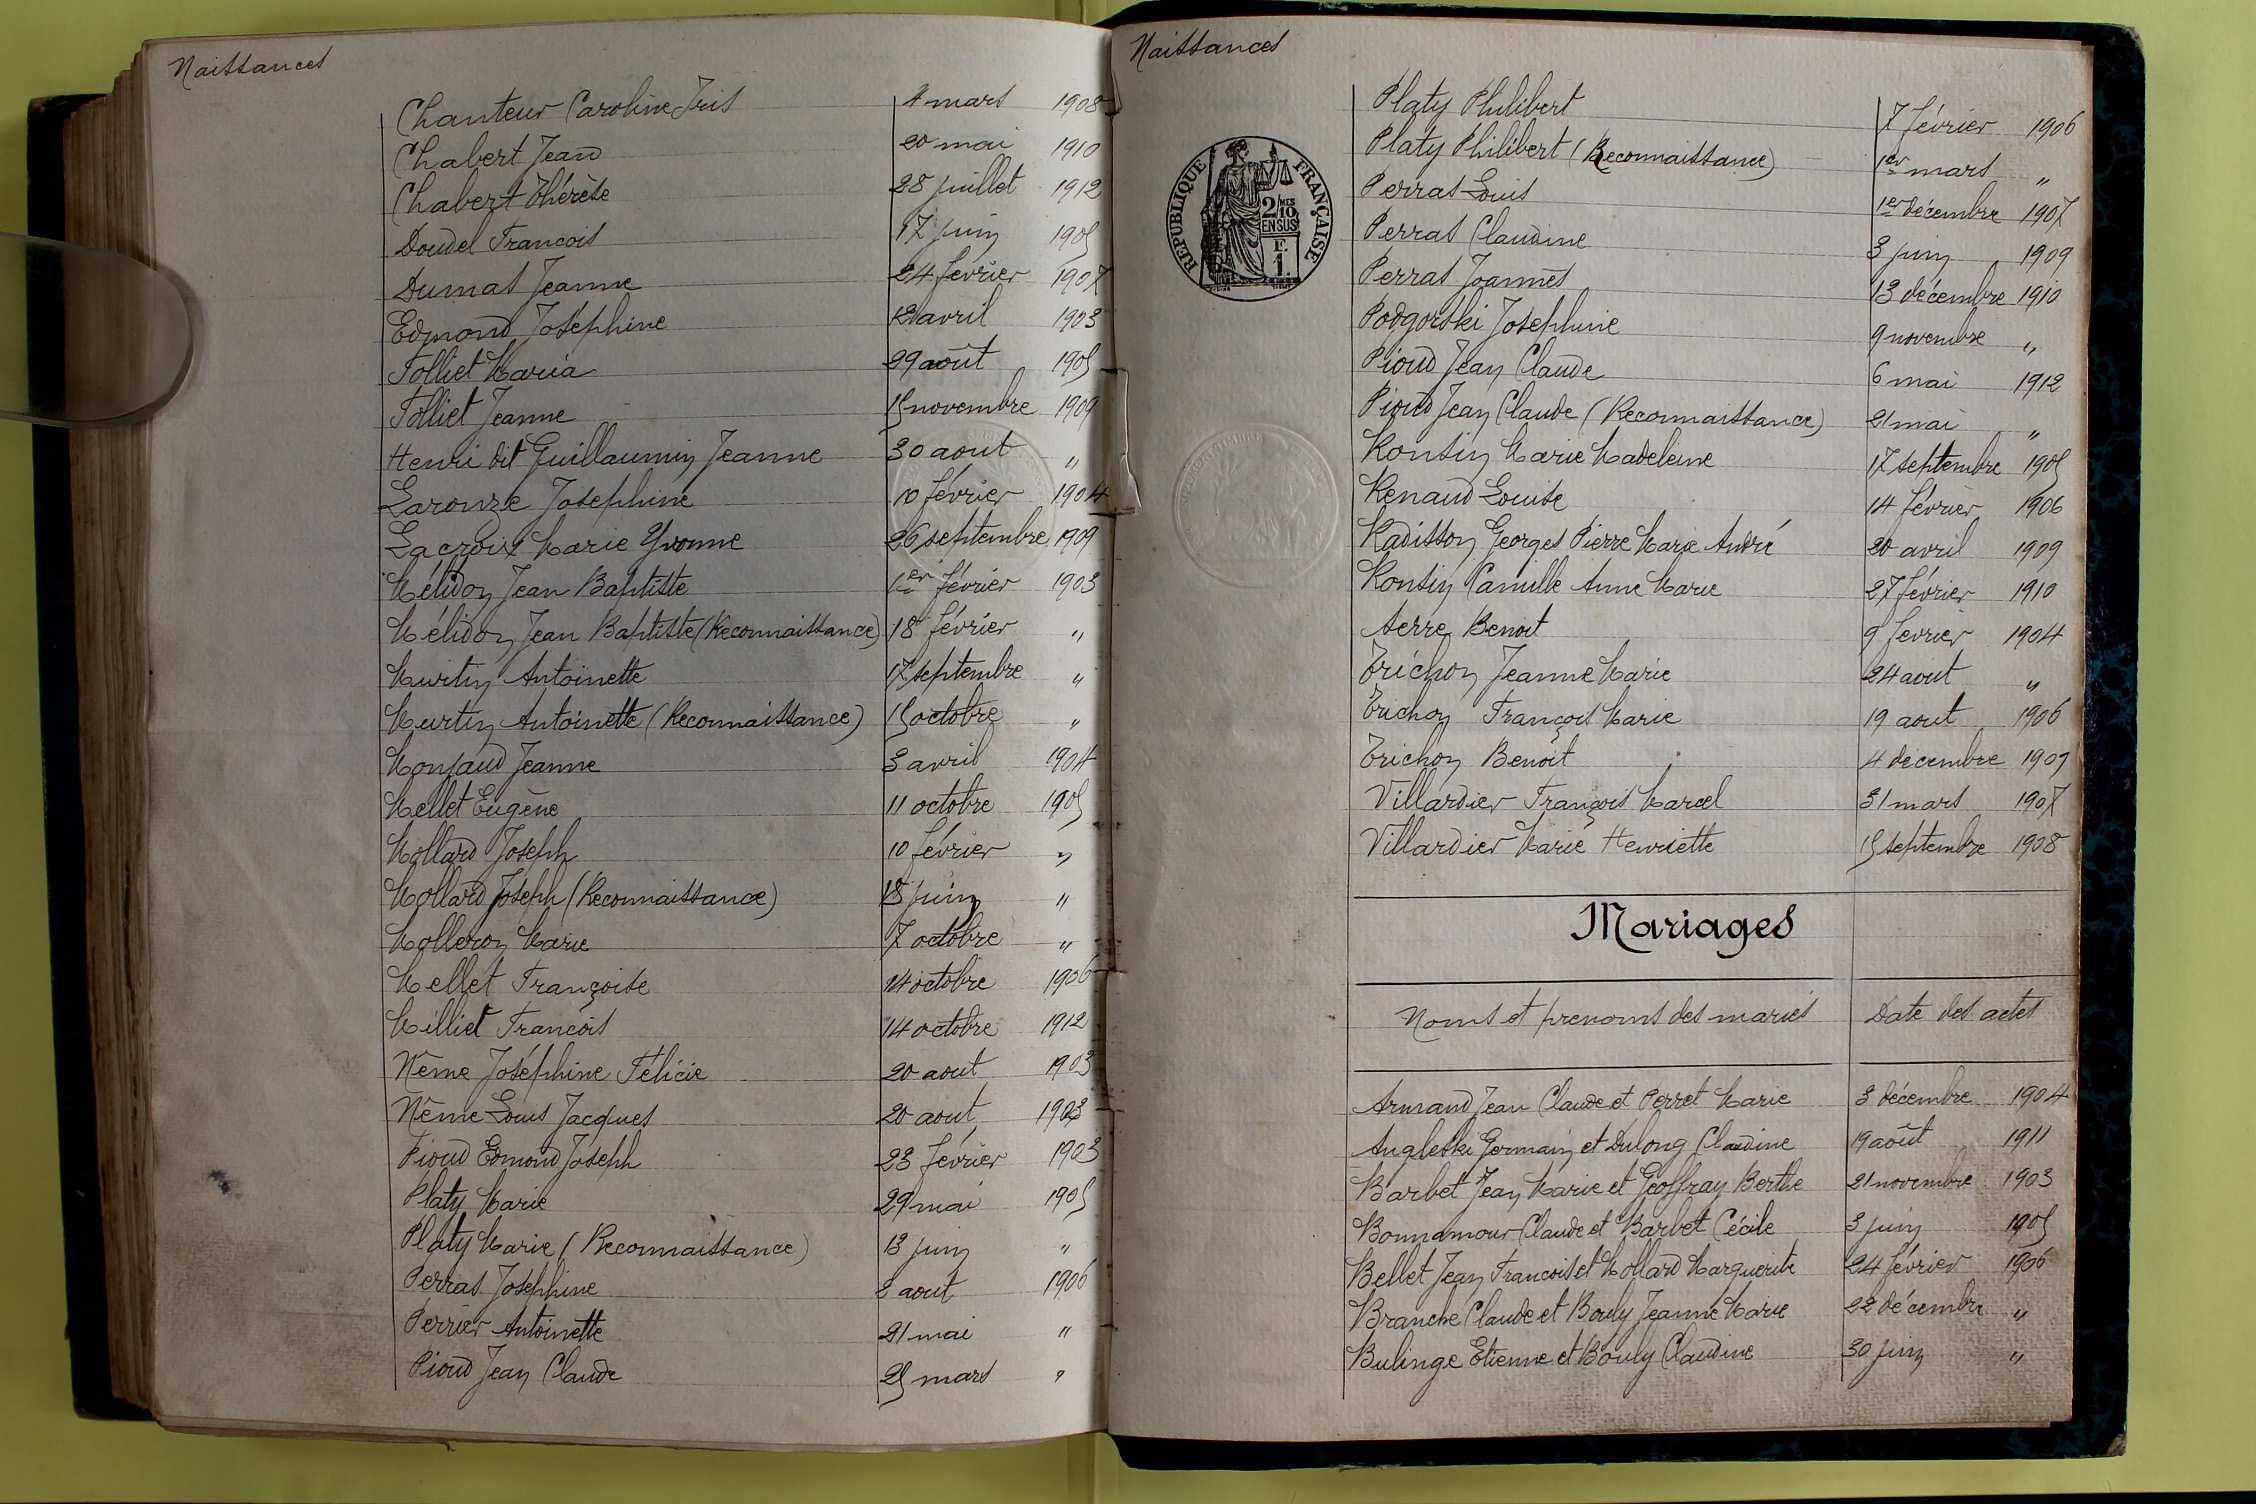 Naissances
Chanteur Caroline Iris 4 mars 1908
Chabert Jean 20 mai 1910
Chabert Thérèse 28 juillet 1912
Doudel Francois 17 juin 1905
Dumas Jeanne 24 février 1907
Edmond Joséphine 12 avril 1903
Folliet Maria 29 août 1905
Folliet Jeanne 15 novembre 1909
Henri dit Guillaumin Jeanne 30 aout "
Laronze Joséphine 10 février 1904
Lacroix Marie Yvonne 26 septembre 1909
Mélidon Jean Baptiste 1er février 1903
Mélidon Jean Baptiste (Reconnaissance) 18 février "
Murtin Antoinette 17 septembre "
Murtin Antoinette (Reconnaissance) 15 octobre "
Monjaud Jeanne 3 avril 1904
Mellet Eugène 11 octobre 1905
Mollard Joseph 10 février "
Mollard Joseph (Reconnaissance) 18 juin "
Molleron Marie 7 octobre "
Mellet Françoise 14 octobre 1906
Milliet Francois 14 octobre 1912
Nême Joséphine Félicie 20 aout 1903
Nême Louis Jacques 20 aout 1903
Pioud Edmond Joseph 23 février 1903
Platy Marie 29 mai 1905
Platy Marie (Reconnaissance) 13 juin "
Perras Joséphine 2 aout 1906
Perrier Antoinette 21 mai "
Pioud Jean Claude 25 mars "
Naissances
RÉPUBLIQUE FRANÇAISE
2/10 MES
EN SUS
F.
1.
Platy Philibert 7 février 1906
Platy Philibert (Reconnaissance) 1er mars "
Perras Louis 1er décembre 1907
Perras Claudine 3 juin 1909
Perras Joannès 13 décembre 1910
Podgorski Josephine 9 novembre "
Pioud Jean Claude 6 mai 1912
Pioud Jean Claude (Reconnaissance) 21 mai "
Ronsin Marie Madeleine 17 septembre 1905
Renaud Louise 14 février 1906
Radisson Georges Pierre Marie André 20 avril 1909
Ronsin Camille Anne Marie 27 février 1910
Serre Benoit 9 février 1904
Trichon Jeanne Marie 24 aout "
Trichon François Marie 19 aout 1906
Trichon Benoit 4 decembre 1909
Villardier François Marcel 31 mars 1907
Villardier Marie Henriette 15 septembre 1908
Mariages
Noms et prenoms des mariés Date des actes
Armand Jean Claude et Perret Marie 3 décembre 1904
Angleski Germain et Dulong Claudine 19 août 1911
Barbet Jean Marie et Geoffray Berthe 21 novembre 1903
Bonnamour Claude et Barbet Cécile 3 juin 1905
Bellet Jean Francois et Mollard Marguerite 24 février 1906
Branche Claude et Bouly Jeanne Marie 22 décembre "
Bulinge Etienne et Bouly Claudine 30 juin "